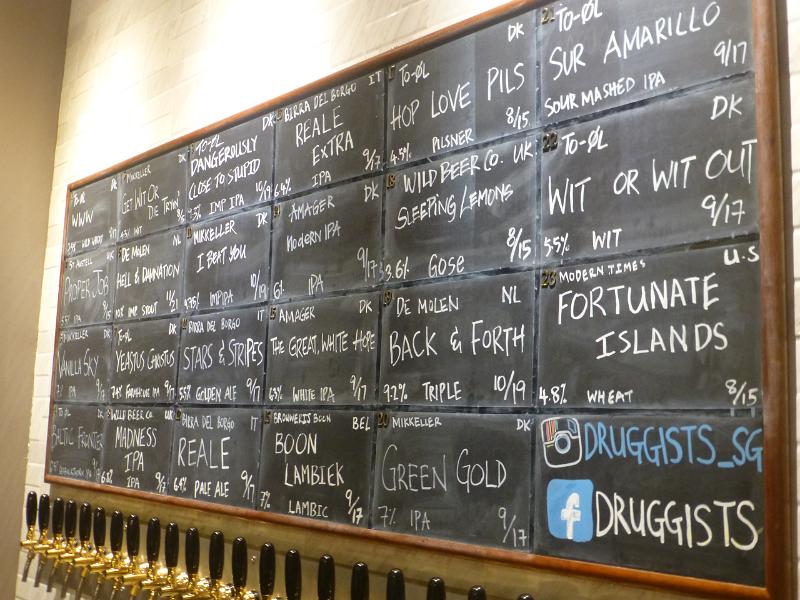 TO-ØL DK
WWW
MIKKELLER DK
GET WIT OR
DIE TRYIN'
WIT
TO-ØL DK
DANGEROUSLY
CLOSE TO STUPID
IMP IPA 10/19
BIRRA DEL BORGO IT
REALE
EXTRA
6.4% IPA 9/17
TO-ØL DK
HOP LOVE PILS
4.5% PILSNER 8/15
21 TO-ØL
SUR AMARILLO
SOUR MASHED IPA 9/17
ST AUSTELL
PROPER JOB
IPA
DE MOLEN NL
HELL & DAMNATION
IMP STOUT
MIKKELLER DK
I BEAT YOU
9.75% IMP IPA 10/19
AMAGER DK
MODERN IPA
6% IPA 9/17
18 WILD BEER CO. UK
SLEEPING LEMONS
3.6% GOSE 8/15
22 TO-ØL DK
WIT OR WIT OUT
5.5% WIT 9/17
MIKKELLER
VANILLA SKY
IPA
TO-ØL DK
YEASTUS CHRISTUS
FARMHOUSE IPA
BIRRA DEL BORGO IT
STARS & STRIPES
5.5% GOLDEN ALE 9/17
15 AMAGER DK
THE GREAT, WHITE HOPE
6.5% WHITE IPA 9/17
19 DE MOLEN NL
BACK & FORTH
9.2% TRIPLE 10/19
23 MODERN TIMES U.S
FORTUNATE
ISLANDS
4.8% WHEAT 8/15
TO-ØL DK
BALTIC FRONTIER
WILD BEER CO UK
MADNESS
IPA
6.8% IPA 9/17
BIRRA DEL BORGO IT
REALE
6.4% PALE ALE 9/17
BROUWERIJ BOON BEL
BOON
LAMBIEK
7% LAMBIC 9/17
20 MIKKELLER DK
GREEN GOLD
7% IPA 9/17
DRUGGISTS_SG
f DRUGGISTS